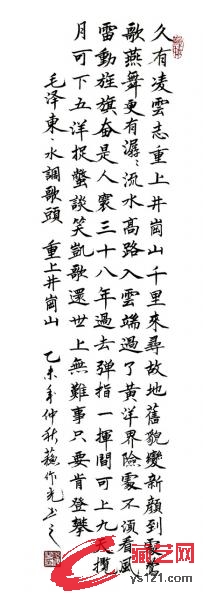 久有凌雲志重上井崗山千里來尋故地舊貌變新顏到處鶯
歌燕舞更有潺〻流水高路入雲端過了黃洋界險處不須看風
雷動旌旗奋是人寰三十八年過去弹指一揮間可上九天攬
月可下五洋捉鱉談笑凱歌還世上無難事只要肯登攀
毛泽東、水調歌頭 重上井崗山 乙未年仲秋蘓作光书之
藏艺网
ys121.com